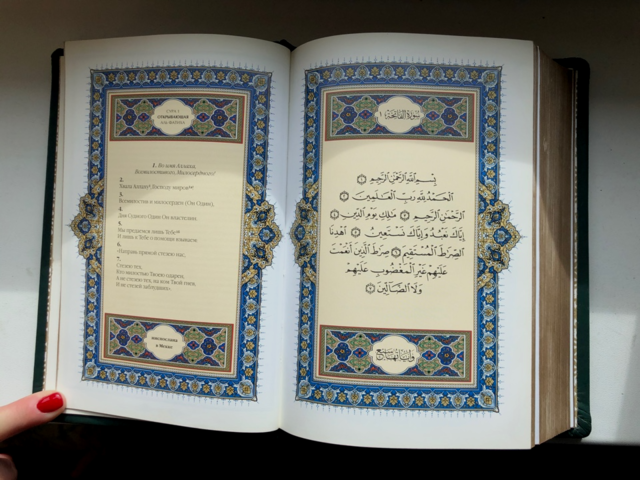 Сура 1
ОТКРЫВАЮЩАЯ
Аль-Фатиха
1. Во имя Аллаха,
Всемилостивого, Милосердного!
2.
Хвала Аллаху, Господу миров
3.
Всемилостив и милосерден (Он Один),
4.
Дня Судного Один Он властелин.
5.
Мы предаемся лишь Тебе
И лишь к Тебе о помощи взываем:
6.
«Направь прямой стезею нас,
7.
Стезею тех,
Кто милостью Твоею одарен,
А не стезею тех, на ком Твой гнев,
И не стезей заблудших».
ниспослана
в Мекке
سورة الفاتحة ١
بِسْمِ ٱللَّهِ ٱلرَّحْمَٰنِ ٱلرَّحِيمِ ١
ٱلْحَمْدُ لِلَّهِ رَبِّ ٱلْعَٰلَمِينَ ٢
ٱلرَّحْمَٰنِ ٱلرَّحِيمِ ٣ مَٰلِكِ يَوْمِ ٱلدِّينِ ٤
إِيَّاكَ نَعْبُدُ وَإِيَّاكَ نَسْتَعِينُ ٥ ٱهْدِنَا
ٱلصِّرَٰطَ ٱلْمُسْتَقِيمَ ٦ صِرَٰطَ ٱلَّذِينَ أَنْعَمْتَ
عَلَيْهِمْ غَيْرِ ٱلْمَغْضُوبِ عَلَيْهِمْ
وَلَا ٱلضَّآلِّينَ ٧
وآياتها سبع